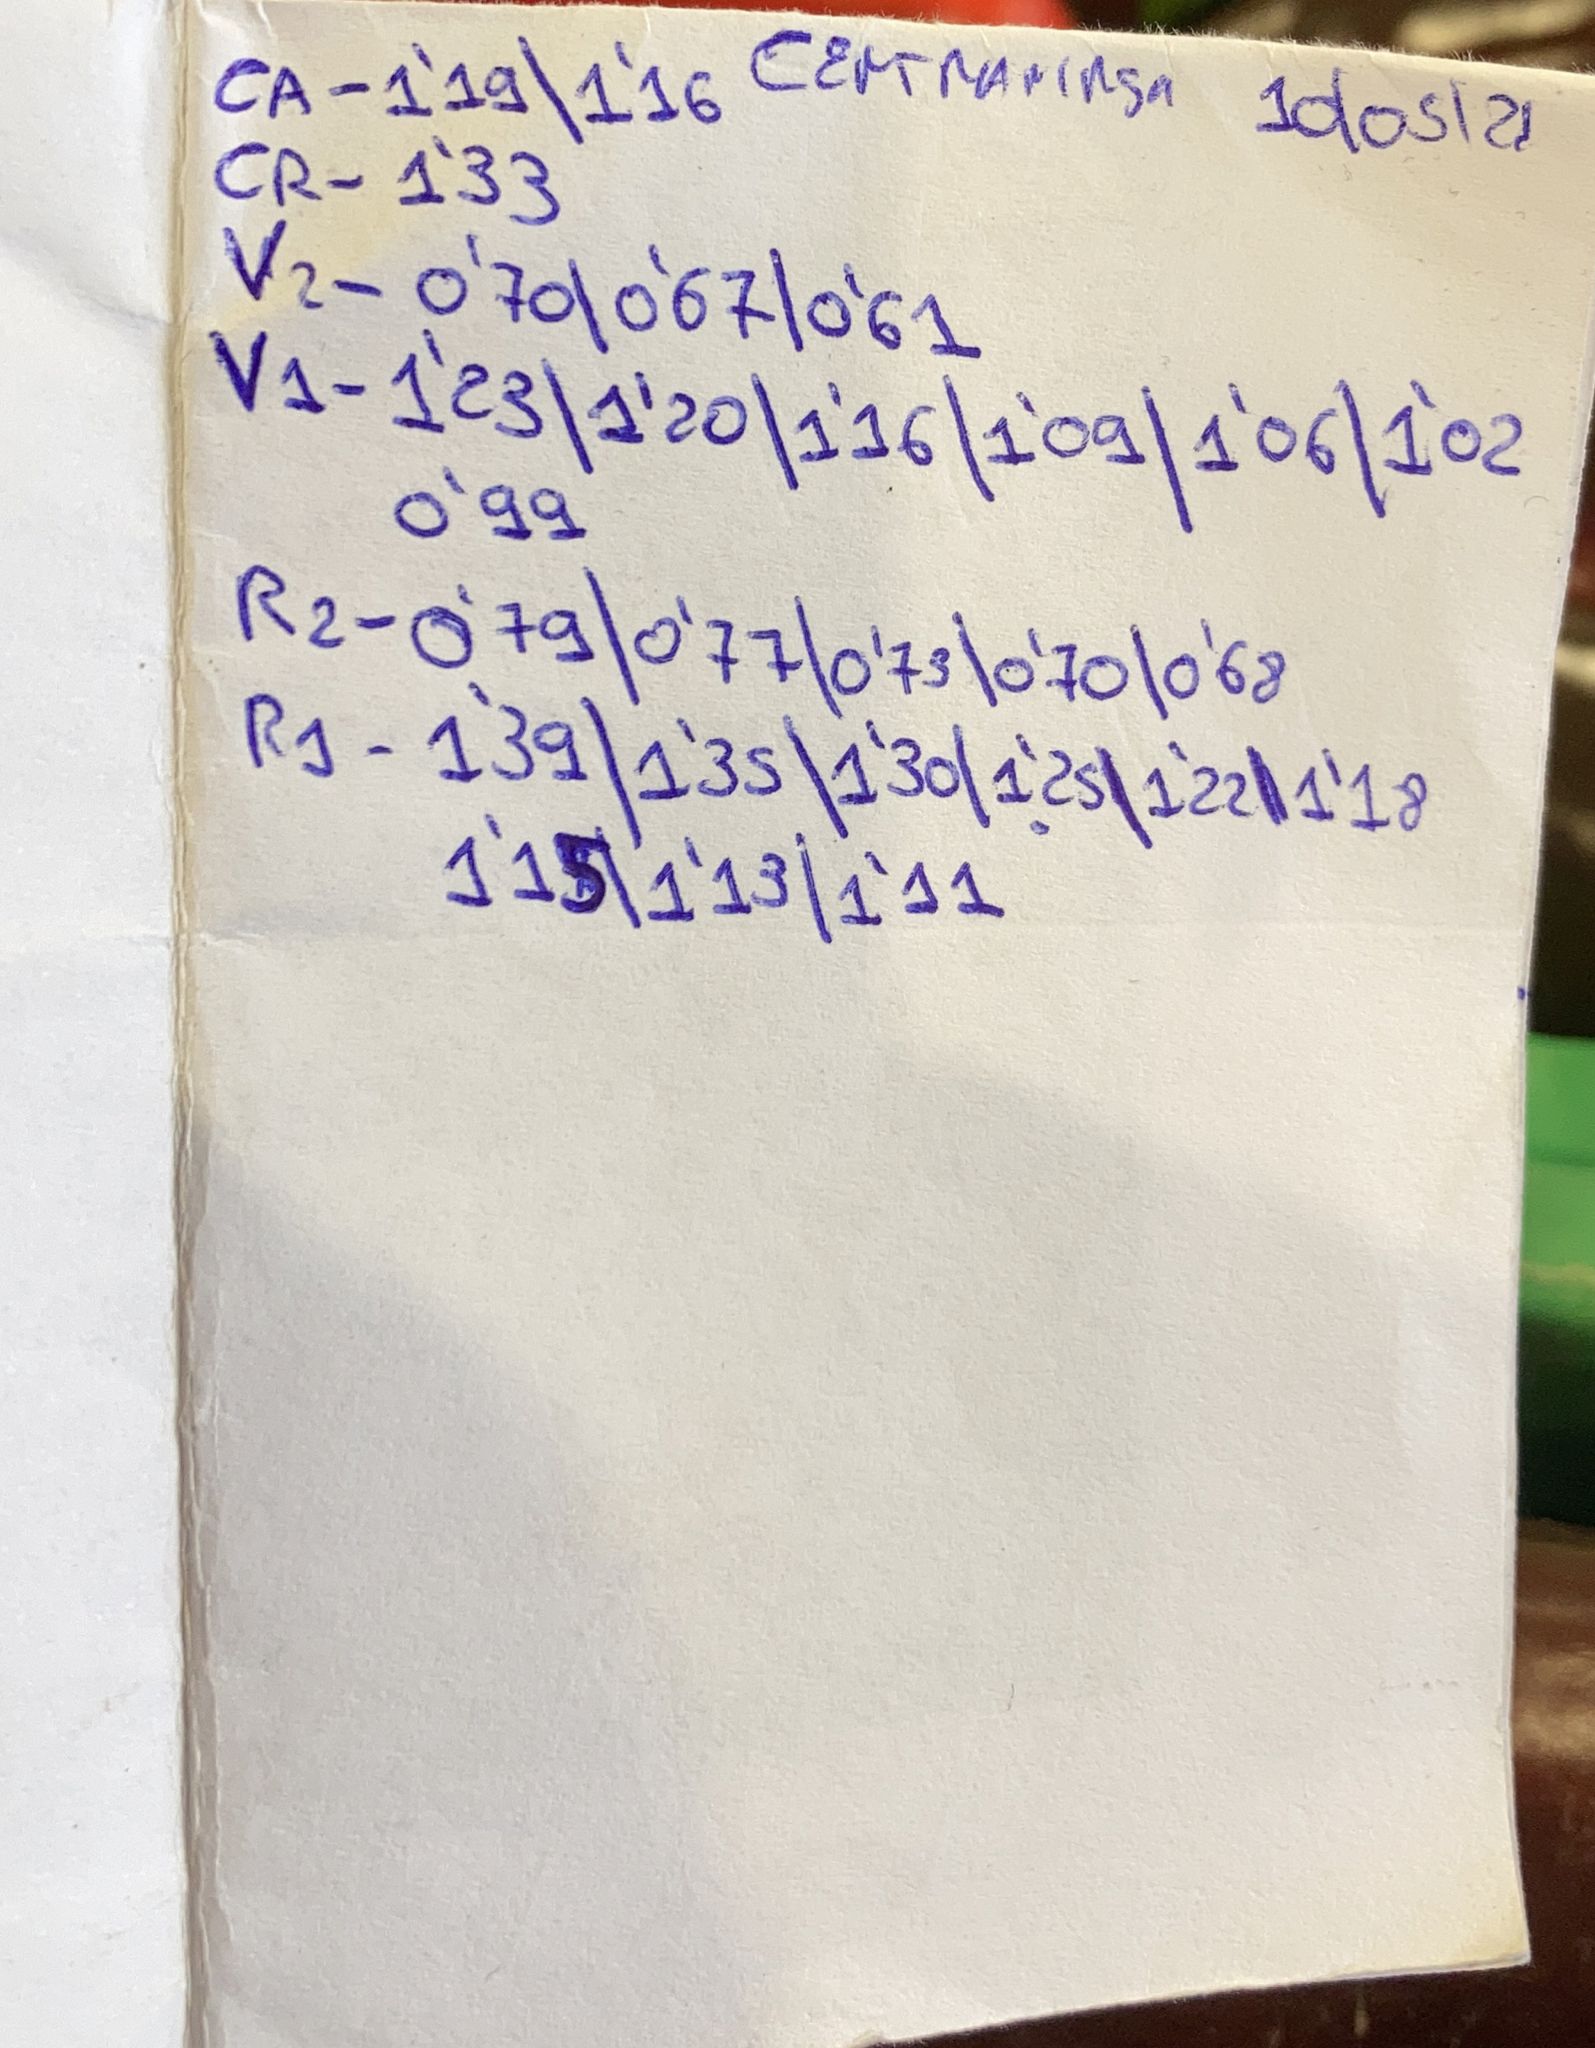 CA - 1'19 \ 1'16 CENTRAMIRSA 10/05/21
CR - 1'33
V2 - 0'70 / 0'67 / 0'61
V1 - 1'23 | 1'20 / 1'16 / 1'09 / 1'06 / 1'02
0'99
R2 - 0'79 / 0'77 / 0'73 \ 0'70 / 0'68
R1 - 1'39 / 1'35 \ 1'30 / 1'25 \ 1'22 \ 1'18
1'15 / 1'13 / 1'11